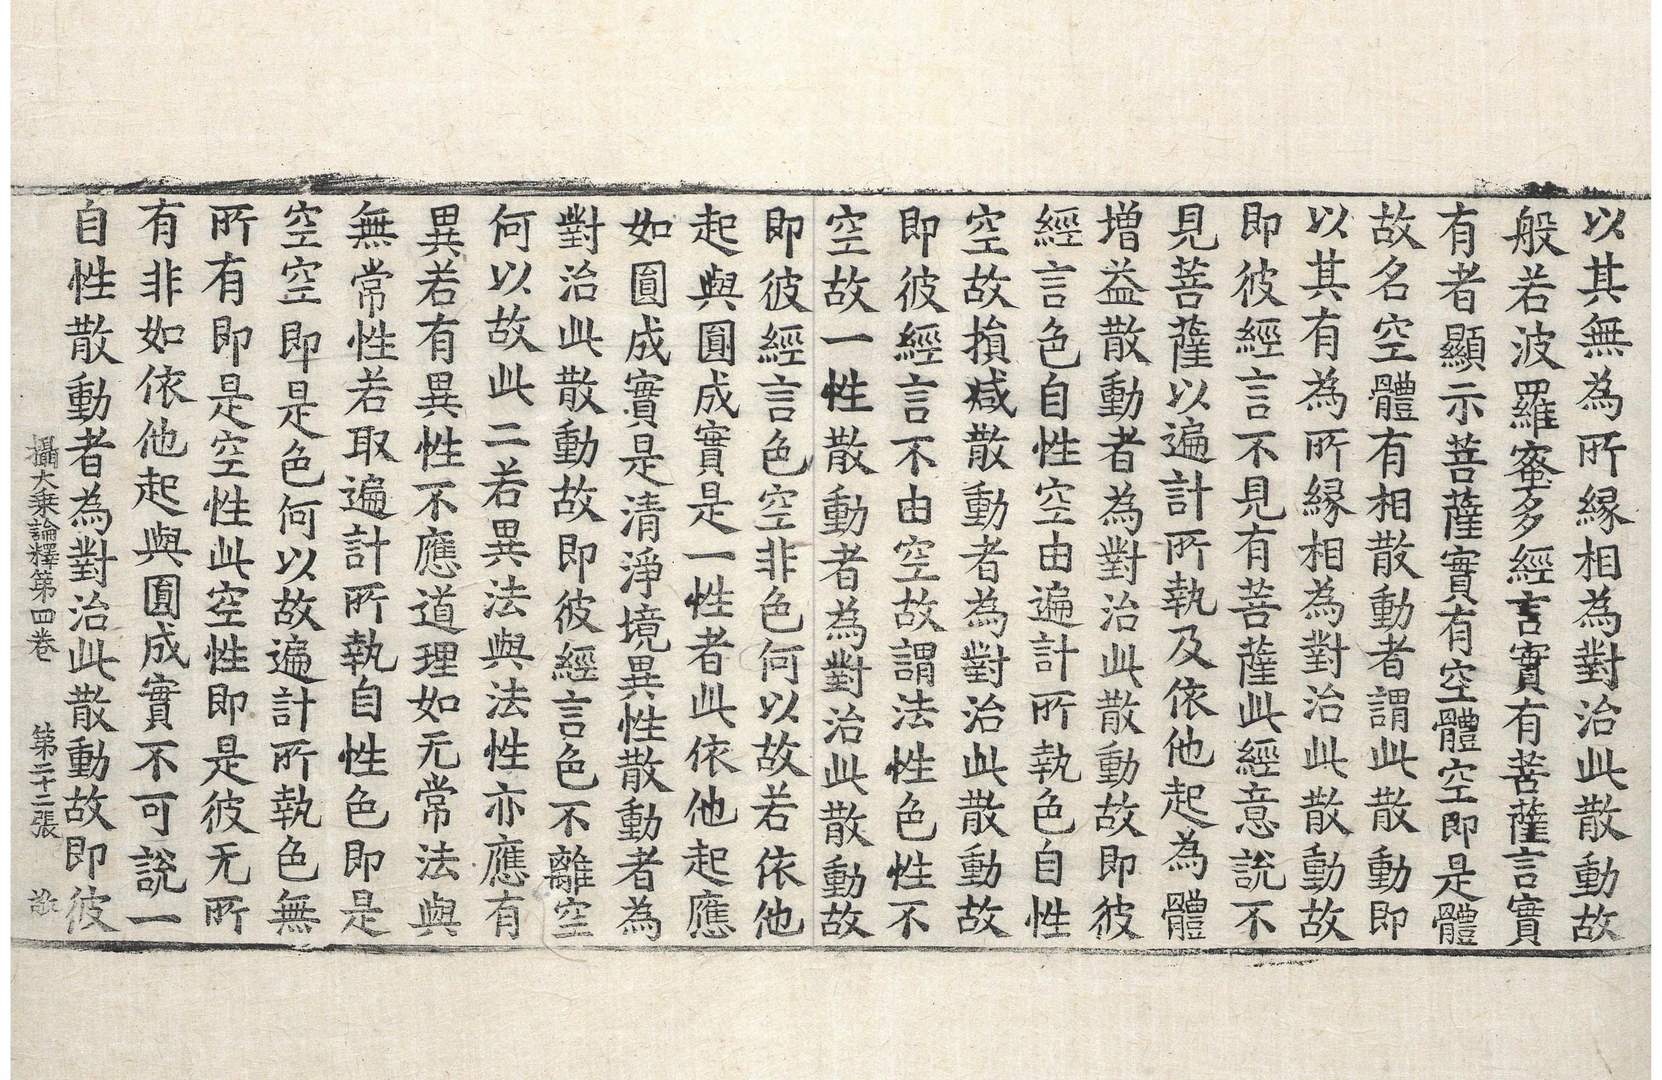 以其無為所縁相為對治此散動故
般若波羅蜜多經言實有菩薩言實
有者顯示菩薩實有空體空即是體
故名空體有相散動者謂此散動即
以其有為所縁相為對治此散動故
即彼經言不見有菩薩此經意說不
見菩薩以遍計所執及依他起為體
增益散動者為對治此散動故即彼
經言色自性空由遍計所執色自性
空故損减散動者為對治此散動故
即彼經言不由空故謂法性色性不
空故一性散動者為對治此散動故
即彼經言色空非色何以故若依他
起與圓成實是一性者此依他起應
如圓成實是清淨境異性散動者為
對治此散動故即彼經言色不離空
何以故此二若異法與法性亦應有
異若有異性不應道理如无常法與
無常性若取遍計所執自性色即是
空空即是色何以故遍計所執色無
所有即是空性此空性即是彼无所
有非如依他起與圓成實不可說一
自性散動者為對治此散動故即彼
攝大乗論釋第四卷 第二十二張